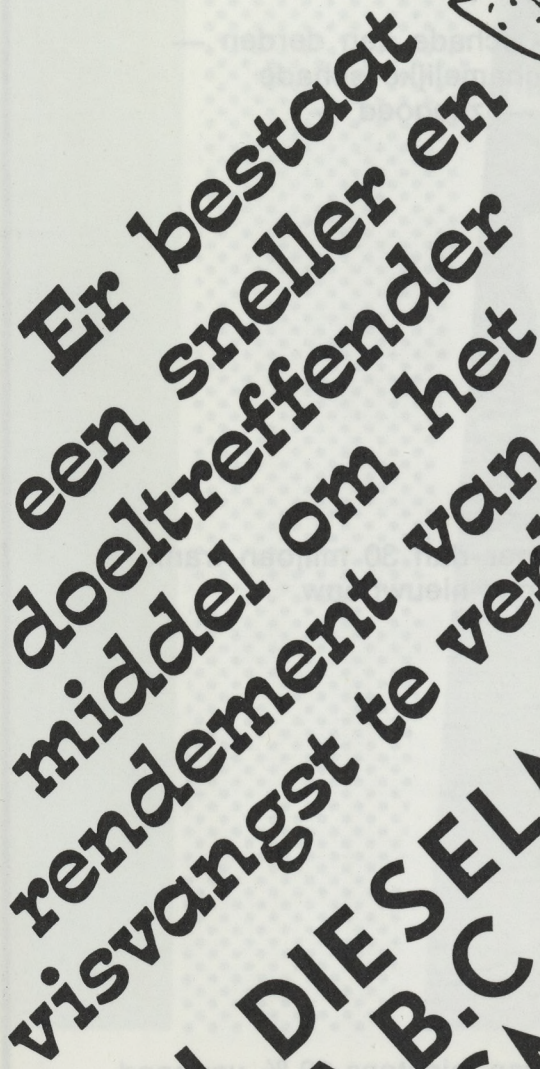 Er bestaat
een sneller en
doeltreffender
middel om het
rendement van
visvangst te
DIESEL
B.C